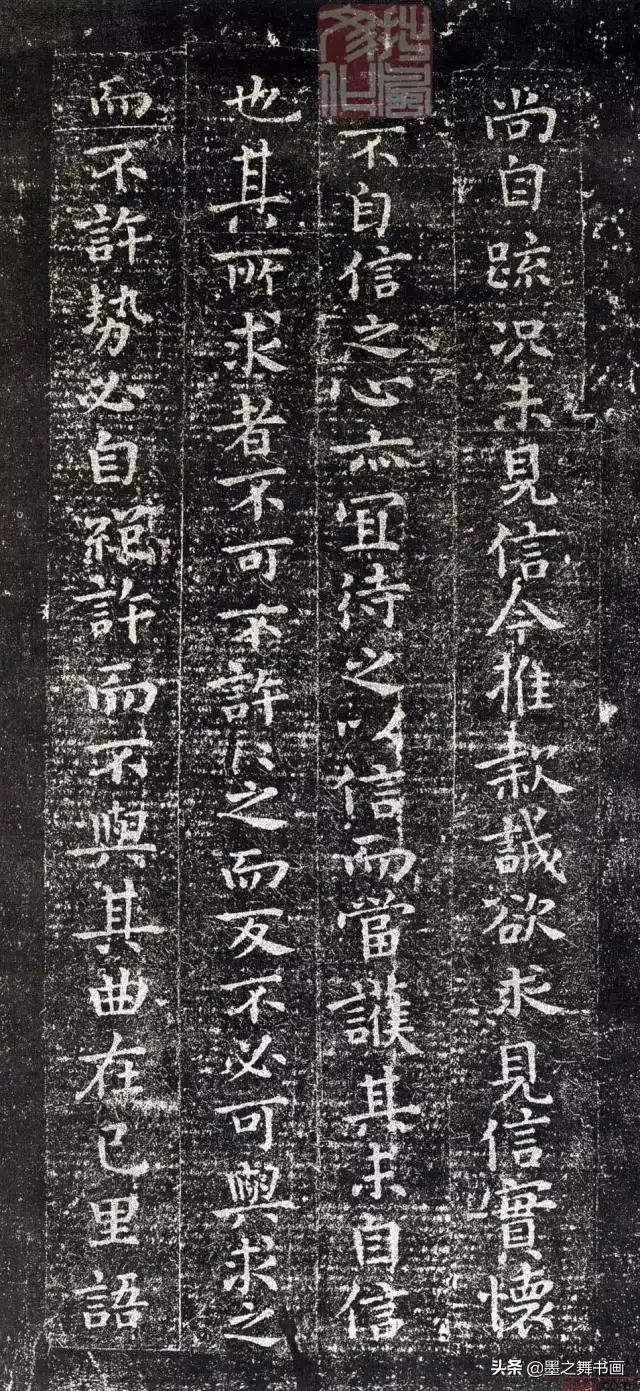 尚自疏况未見信今推款誠欲求見信實懷
不自信之心亦宜待之以信而當護其未自信
也其所求者不可不許許之而反不必可與求之
而不許勢必自絕許而不與其曲在己里語
头条 @墨之舞书画